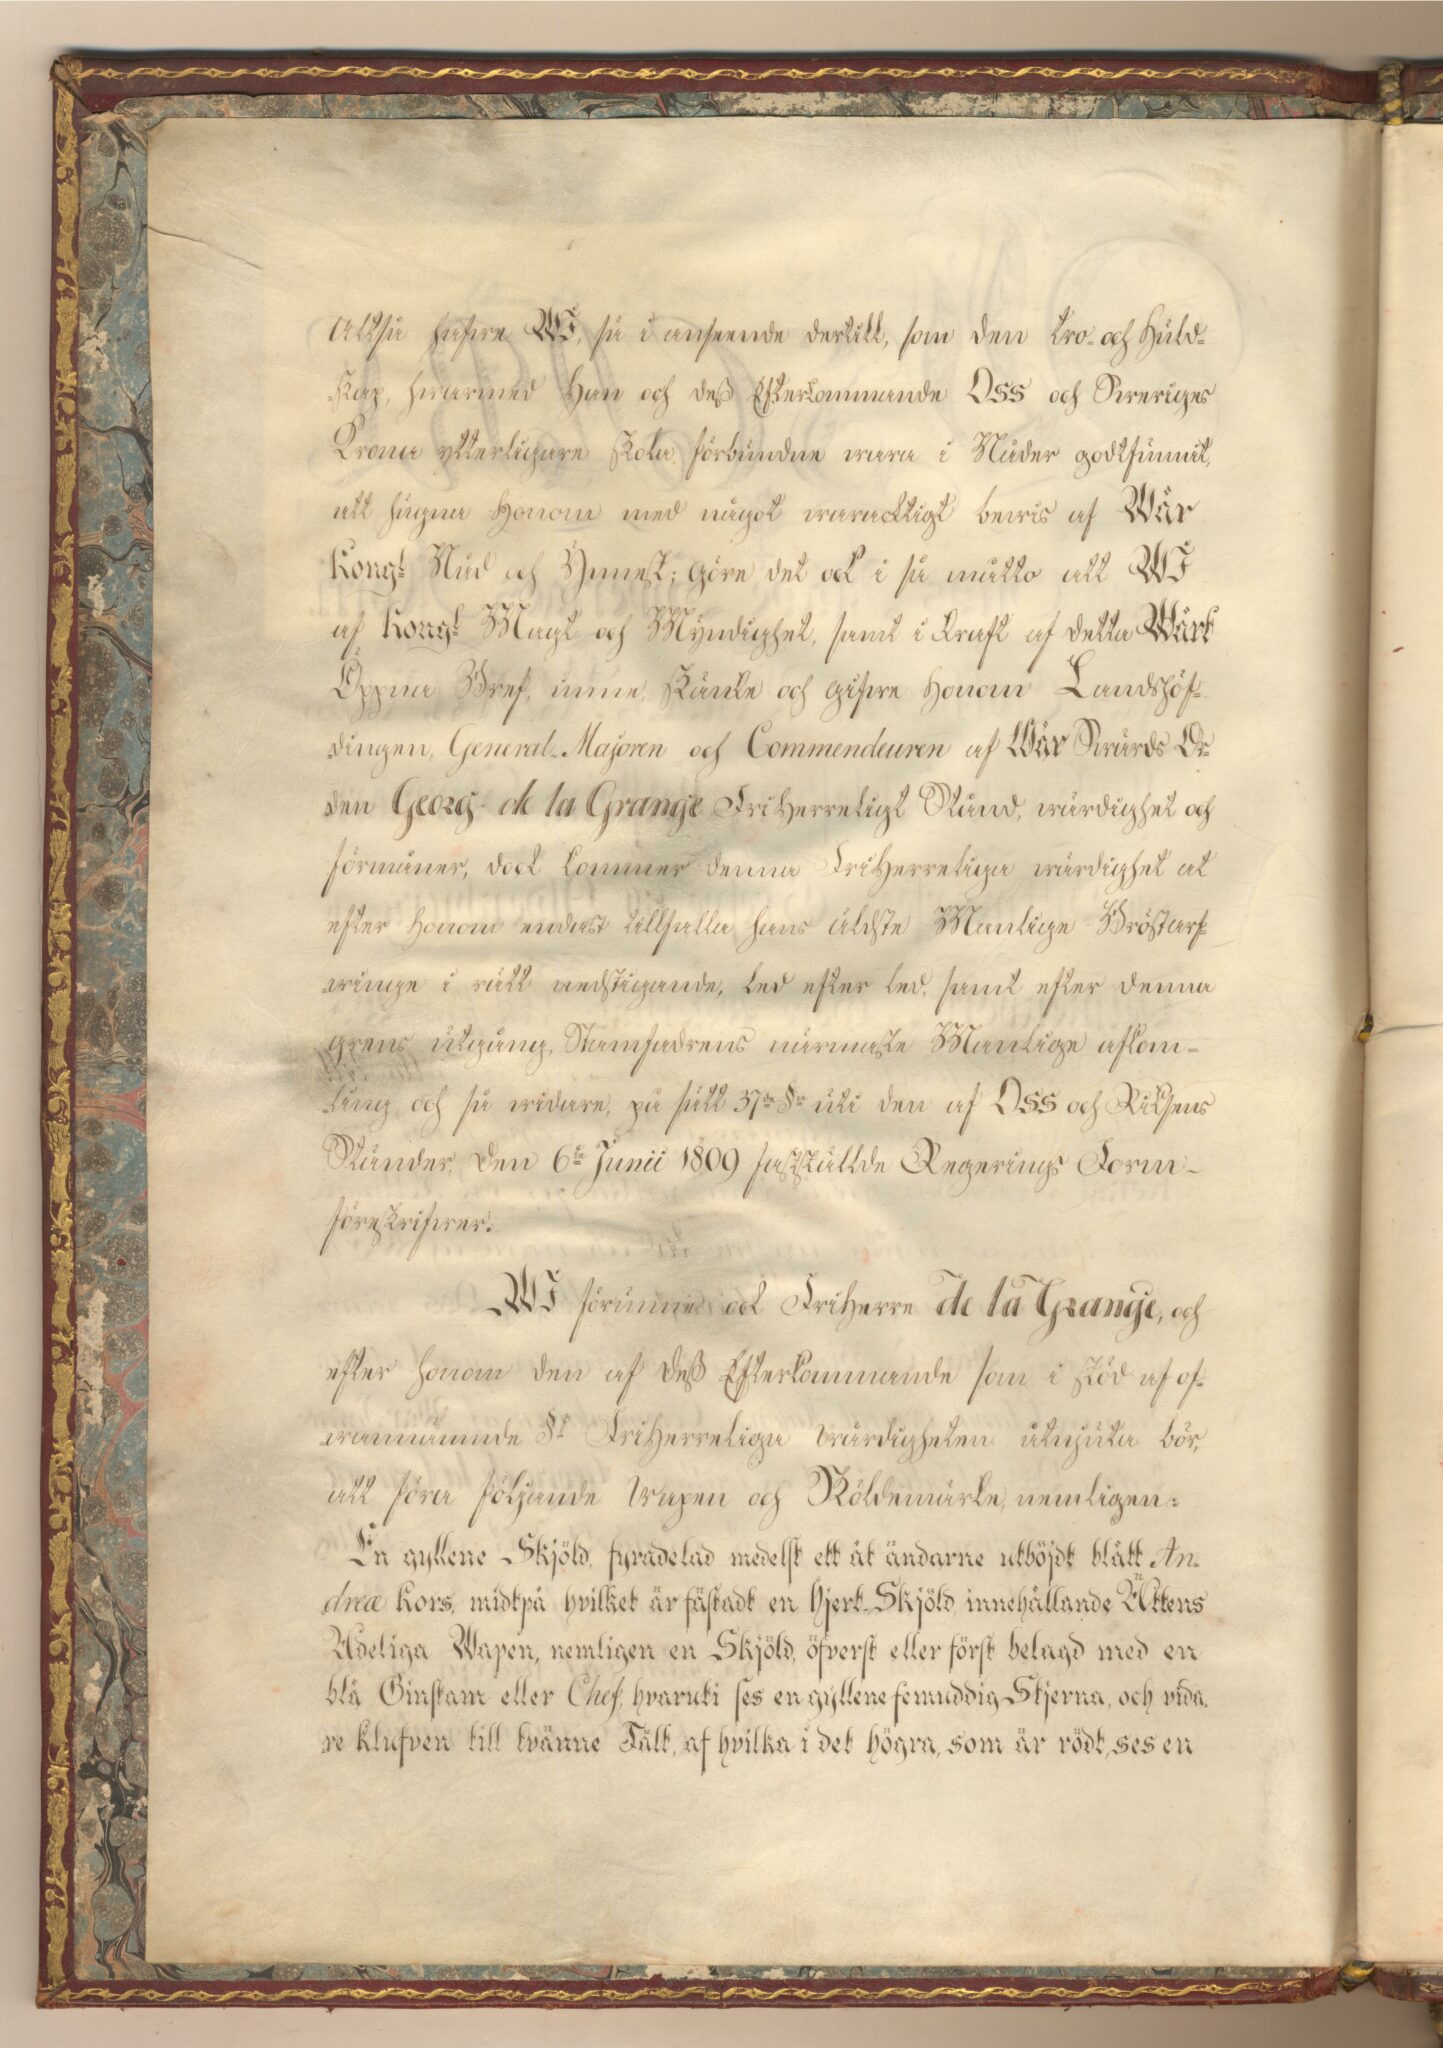 Altså hafve WI, så i anseende dertill, som den tro- och Huld-
skap, hvarmed Han och deß Efterkommande OSS och Sveriges
Krona ytterligare skola förbundne vara i Nåder godtfunnit,
att hugna Honom med något varacktigt bevis af Wår
Kongl. Nåd och Ynnest; göre det ock i så motto att WI
af Kongl. Magt och Myndighet, samt i kraft af detta Wårt
Öppna Bref, unne, skänke och gifve Honom Landshöf-
dingen, General-Majoren och Commendeuren af Wår Svärds Or-
den Georg de la Grange FriHerreligt Stånd, värdighet och
förmåner, dock kommer denna FriHerreliga värdighet at
efter Honom endast tillfalla hans äldste Manlige Bröstarf-
vinge i rätt nedstigande, led efter led, samt efter denna
grens utgång, Stamfadrens närmaste Manlige afkom-
ling och så vidare, på sätt 37de §n uti den af OSS och Riksens
Ständer, den 6te Junii 1809 fastställde Regerings Form
föreskrifver.
WI förunne ock FriHerre de la Grange, och
efter honom den af deß Efterkommande som i stöd af of-
vannämnde §f FriHerreliga värdigheten utnjuta bör,
att föra följande Wapen och Sköldemärke, nemligen:
En gyllene Skjöld, fyradelad medelst ett åt ändarne utböjdt blått An-
dreæ Kors, midtpå hvilket är fästadt en hjert-Skjöld, innehållande Ättens
Adeliga Wapen, nemligen en Skjöld, öfverst eller först belagd med en
blå Ginstam eller Chef, hvaruti ses en gyllene femuddig Stjerna, och vida-
re klufven till tvänne Fält, af hvilka i det högra, som är rödt, ses en